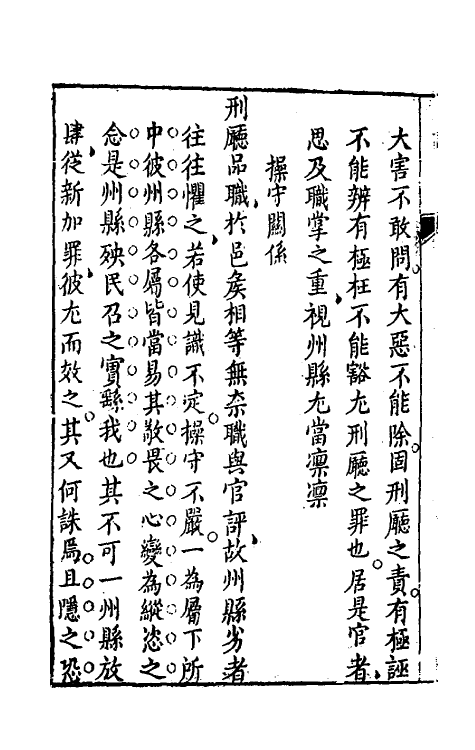 大害不敢問有大惡不能除固刑廳之責有極誣
不能辨有極枉不能豁尤刑廳之罪也居是官者
思及職掌之重視州縣尤當凜凜
操守關係
刑廳品職於邑矦相等無柰職與官評故州縣劣者
往往懼之若使見識不定操守不嚴一為屬下所
中彼州縣各屬皆當易其敬畏之心變為縱恣之
念是州縣殃民召之實繇我也其不可一州縣放
肆從新加罪彼尤而效之其又何誅焉且隱之恐